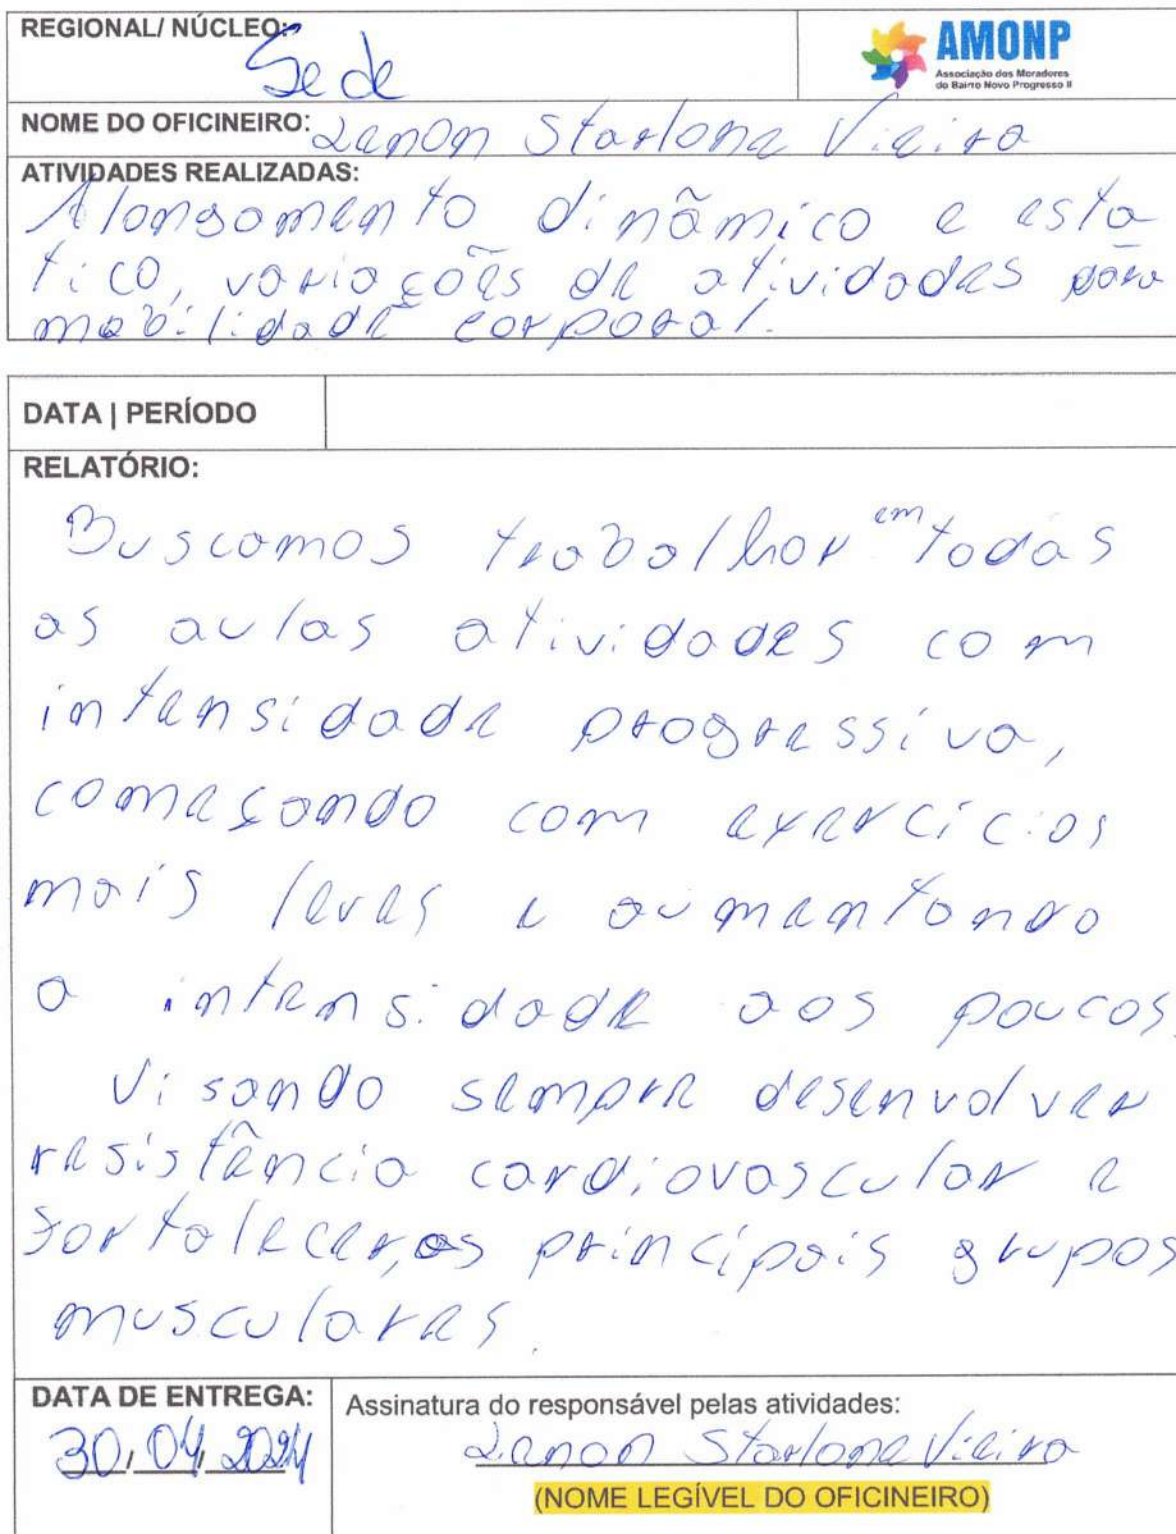 REGIONAL/ NÚCLEO:
Sede
AMONP
Associação dos Moradores
do Bairro Novo Progresso II
NOME DO OFICINEIRO: Lenon Starlone Vieira
ATIVIDADES REALIZADAS:
Alongamento dinâmico e esta
tico, variações de atividades para
mobilidade corporal.
DATA | PERÍODO
RELATÓRIO:
Buscamos trabalhar em todas
as aulas atividades com
intensidade progressiva,
começando com exercícios
mais leves e aumentando
a intensidade aos poucos.
Visando sempre desenvolver
resistência cardiovascular e
fortalecer, os principais grupos
musculares.
DATA DE ENTREGA:
30, 04, 2024
Assinatura do responsável pelas atividades:
Lenon Starlone Vieira
(NOME LEGÍVEL DO OFICINEIRO)